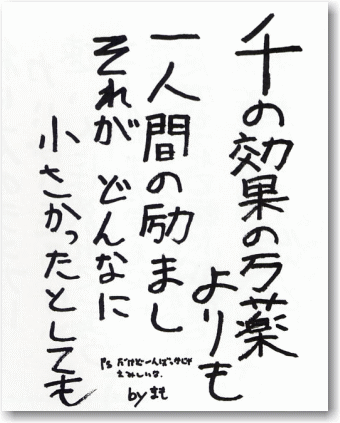 千の効果の万薬
よりも
一人間の励まし
それが どんなに
小さかったとしても
Ps
さみしいな.
by まも